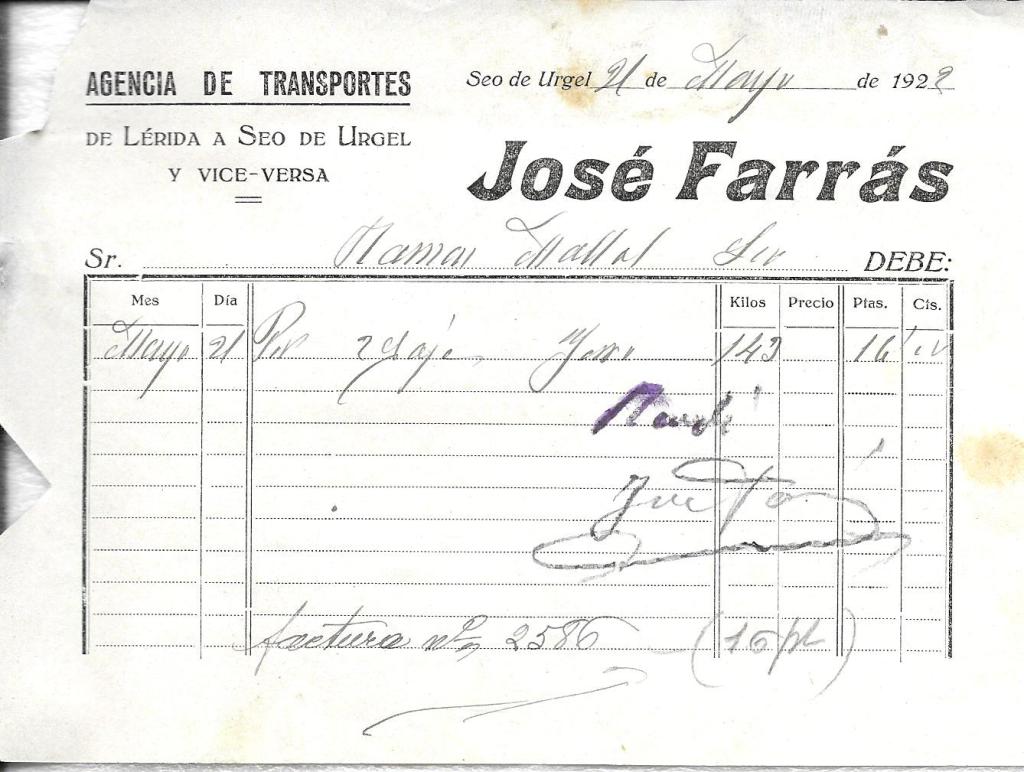 AGENCIA DE TRANSPORTES
DE LÉRIDA A SEO DE URGEL
Y VICE-VERSA
Seo de Urgel 21 de Mayo de 1922
José Farrás
Sr. DEBE:
Mes Día Kilos Precio Ptas. Cts.
Mayo 21 Por 2 143 16
factura nº 2586 (16 pts)